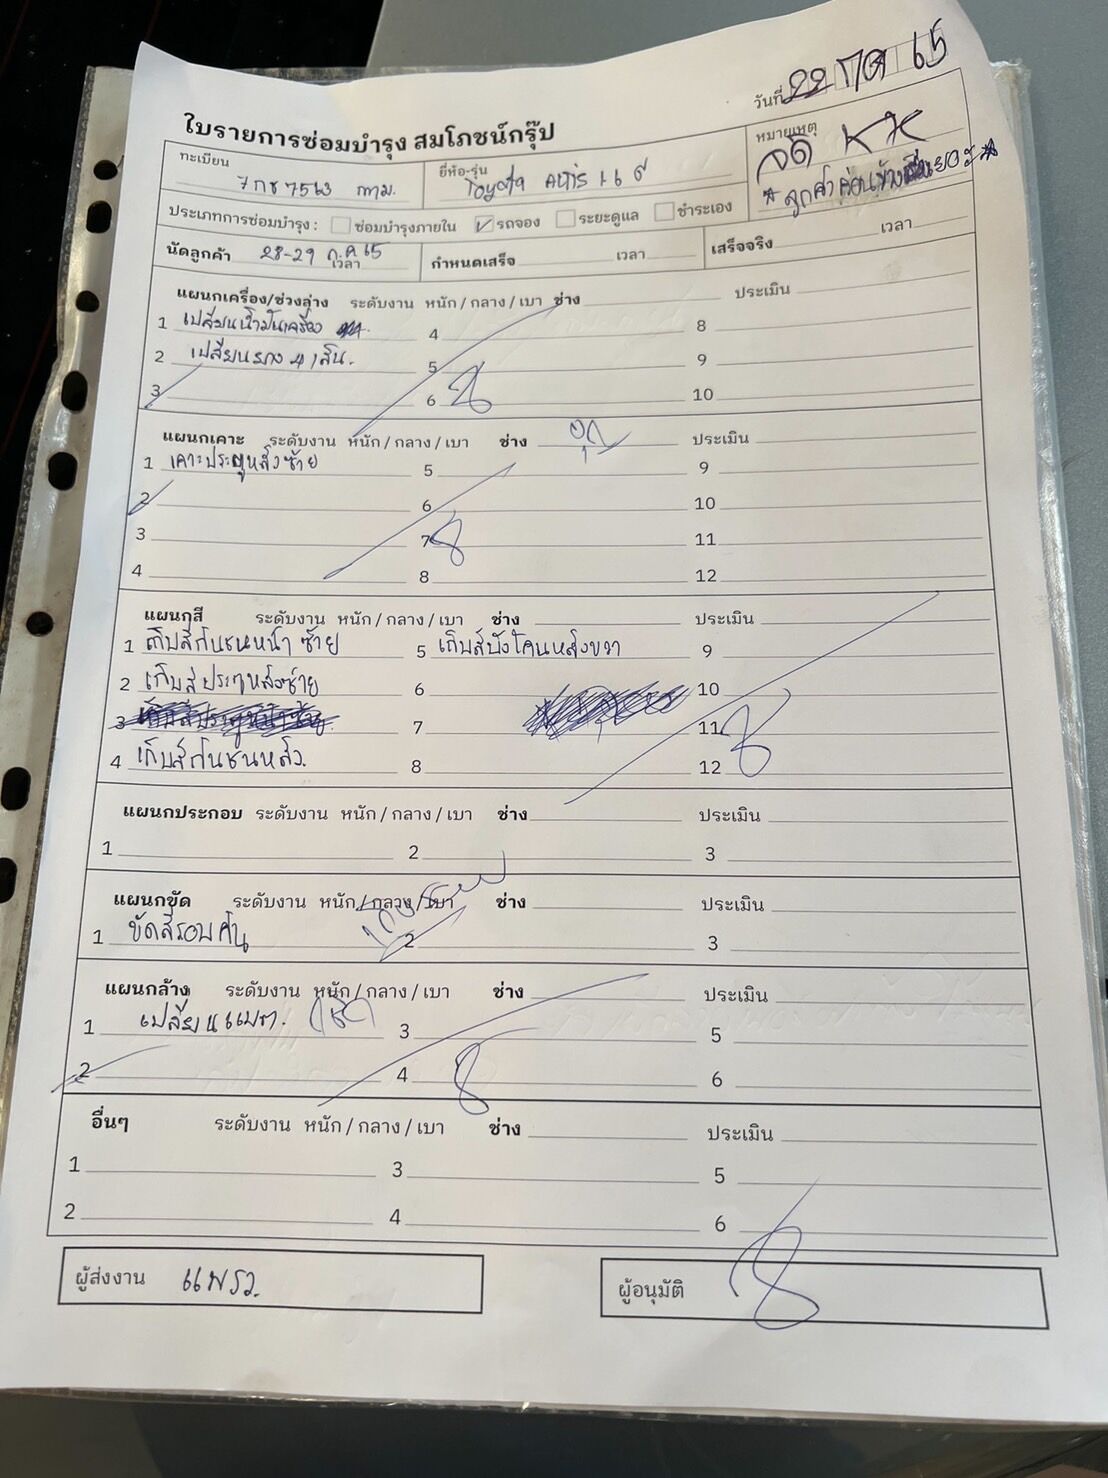 วันที่ 22 กค 65
ใบรายการซ่อมบำรุง สมโภชน์กรุ๊ป
หมายเหตุ
ทะเบียน 7กช 7563 กทม.
ยี่ห้อ-รุ่น Toyota Altis 1.6 G
* ลูกค้าค่อนข้าง
ประเภทการซ่อมบำรุง : ซ่อมบำรุงภายใน ✓ รถจอง ระยะดูแล ชำระเอง
นัดลูกค้า 28-29 ก.ค 65 เวลา กำหนดเสร็จ เวลา เสร็จจริง เวลา
แผนกเครื่อง/ช่วงล่าง ระดับงาน หนัก / กลาง / เบา ช่าง ประเมิน
1 เปลี่ยนน้ำมันเครื่อง 4 8
2 เปลี่ยนยาง 4 เส้น. 5 9
3 6 10
แผนกเคาะ ระดับงาน หนัก / กลาง / เบา ช่าง ประเมิน
1 เคาะประตูหลังซ้าย 5 9
2 6 10
3 7 11
4 8 12
แผนกสี ระดับงาน หนัก / กลาง / เบา ช่าง ประเมิน
1 เก็บสีกันชนหน้า ซ้าย 5 เก็บสีบังโคลนหลังขวา 9
2 เก็บสีประตูหลังซ้าย 6 10
3 7 11
4 เก็บสีกันชนหลัง. 8 12
แผนกประกอบ ระดับงาน หนัก / กลาง / เบา ช่าง ประเมิน
1 2 3
แผนกขัด ระดับงาน หนัก / กลาง / เบา ช่าง ประเมิน
1 ขัดสีรอบคัน 2 3
แผนกล้าง ระดับงาน หนัก / กลาง / เบา ช่าง ประเมิน
1 เปลี่ยนแบต. 3 5
2 4 6
อื่นๆ ระดับงาน หนัก / กลาง / เบา ช่าง ประเมิน
1 3 5
2 4 6
ผู้ส่งงาน แพรว.
ผู้อนุมัติ